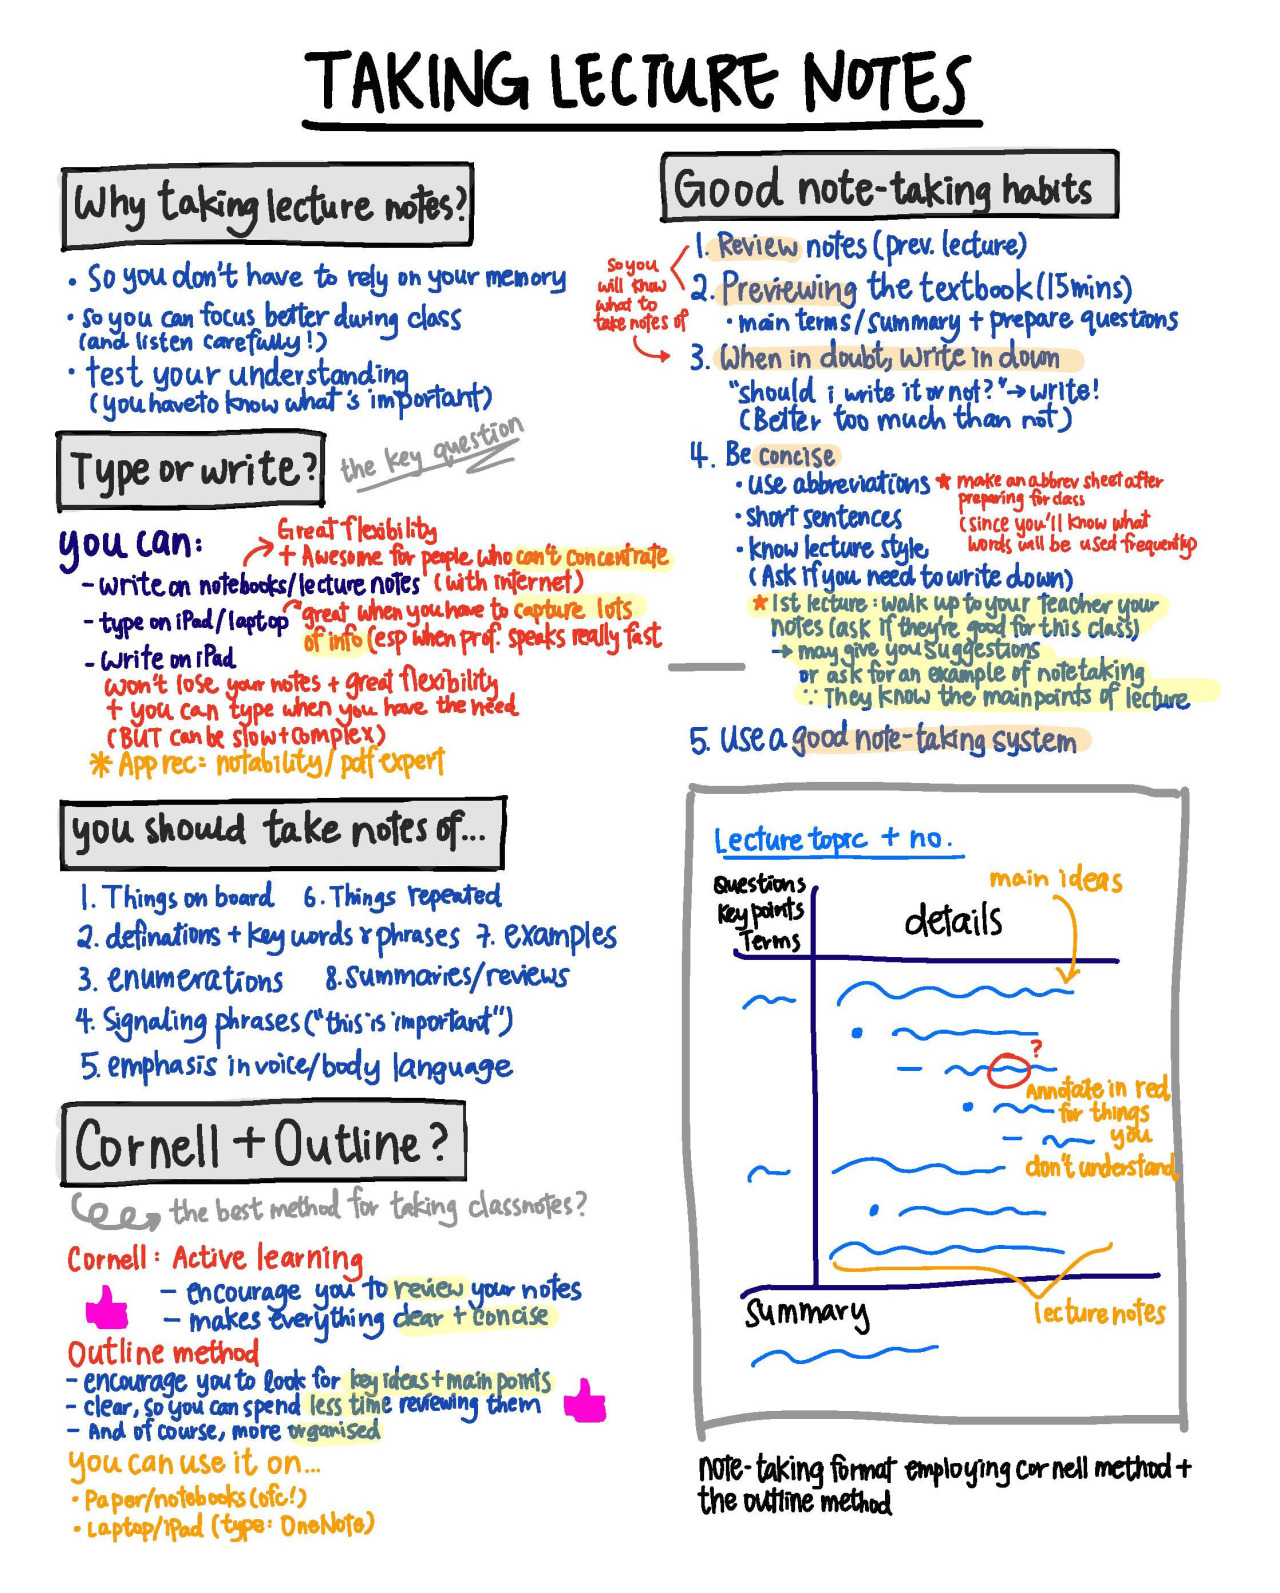 TAKING LECTURE NOTES
Why taking lecture notes?
• So you don't have to rely on your memory
• so you can focus better during class
(and listen carefully!)
• test your understanding
(you have to know what's important)
Type or write?
the key question
you can:
Great flexibility
+ Awesome for people who can't concentrate
- write on notebooks/lecture notes (with internet)
- type on iPad/laptop great when you have to capture lots
of info (esp when prof. speaks really fast
- Write on iPad
won't lose your notes + great flexibility
+ you can type when you have the need
(BUT can be slow + complex)
* App rec: notability/pdf expert
you should take notes of...
1. Things on board 6. Things repeated
2. definations + key words & phrases 7. examples
3. enumerations 8. summaries/reviews
4. Signaling phrases ("this is important")
5. emphasis in voice/body language
Cornell + Outline?
the best method for taking classnotes?
Cornell: Active learning
- encourage you to review your notes
- makes everything clear + concise
Outline method
- encourage you to look for key ideas + main points
- clear, so you can spend less time reviewing them
- And of course, more organised
you can use it on...
• Paper/notebooks (ofc!)
• Laptop/iPad (type: OneNote)
Good note-taking habits
1. Review notes (prev. lecture)
So you
will know
what to
take notes of
2. Previewing the textbook (15mins)
• main terms/summary + prepare questions
3. When in doubt, write in down
"should i write it or not?" → write!
(Better too much than not)
4. Be concise
• use abbreviations * make an abbrev sheet after
preparing for class
• short sentences (since you'll know what
words will be used frequently)
• know lecture style
(Ask if you need to write down)
* 1st lecture: walk up to your teacher your
notes (ask if they're good for this class)
→ may give you suggestions
or ask for an example of notetaking
∵ They know the main points of lecture
5. use a good note-taking system
Lecture topic + no.
Questions
Key points
Terms
details
main ideas
?
Annotate in red
for things
you
don't understand
Summary
lecture notes
note-taking format employing cornell method +
the outline method